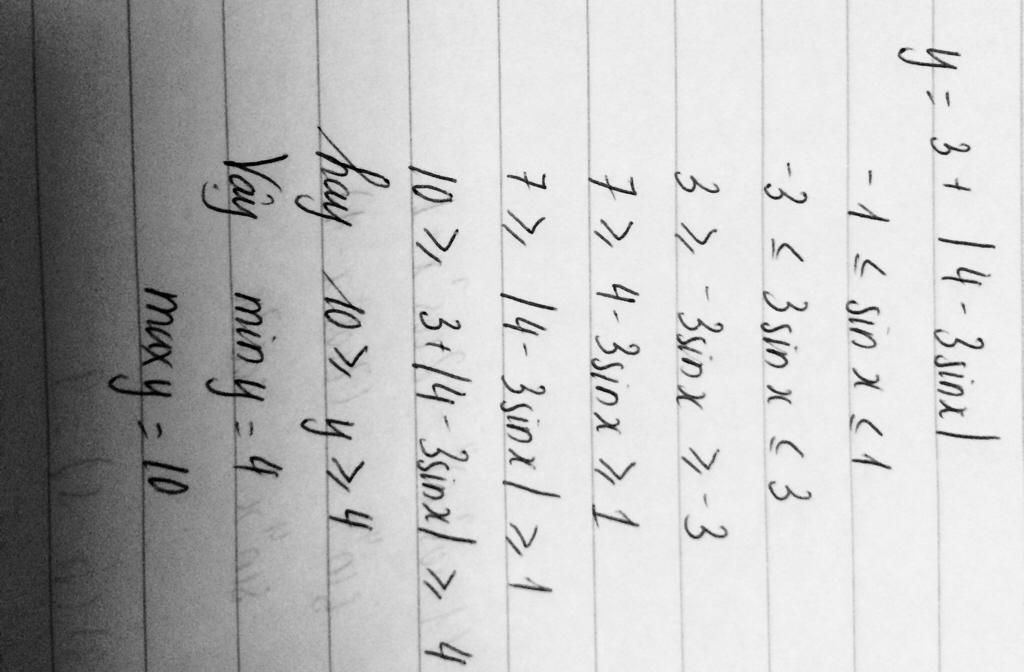 y = 3 + |4 - 3sinx|
-1 ≤ sin x ≤ 1
-3 ≤ 3sin x ≤ 3
3 ⩾ -3sinx ⩾ -3
7 ⩾ 4 - 3sinx ⩾ 1
7 ⩾ |4 - 3sinx| ⩾ 1
10 ⩾ 3 + |4 - 3sinx| ⩾ 4
hay 10 ⩾ y ⩾ 4
Vậy min y = 4
max y = 10